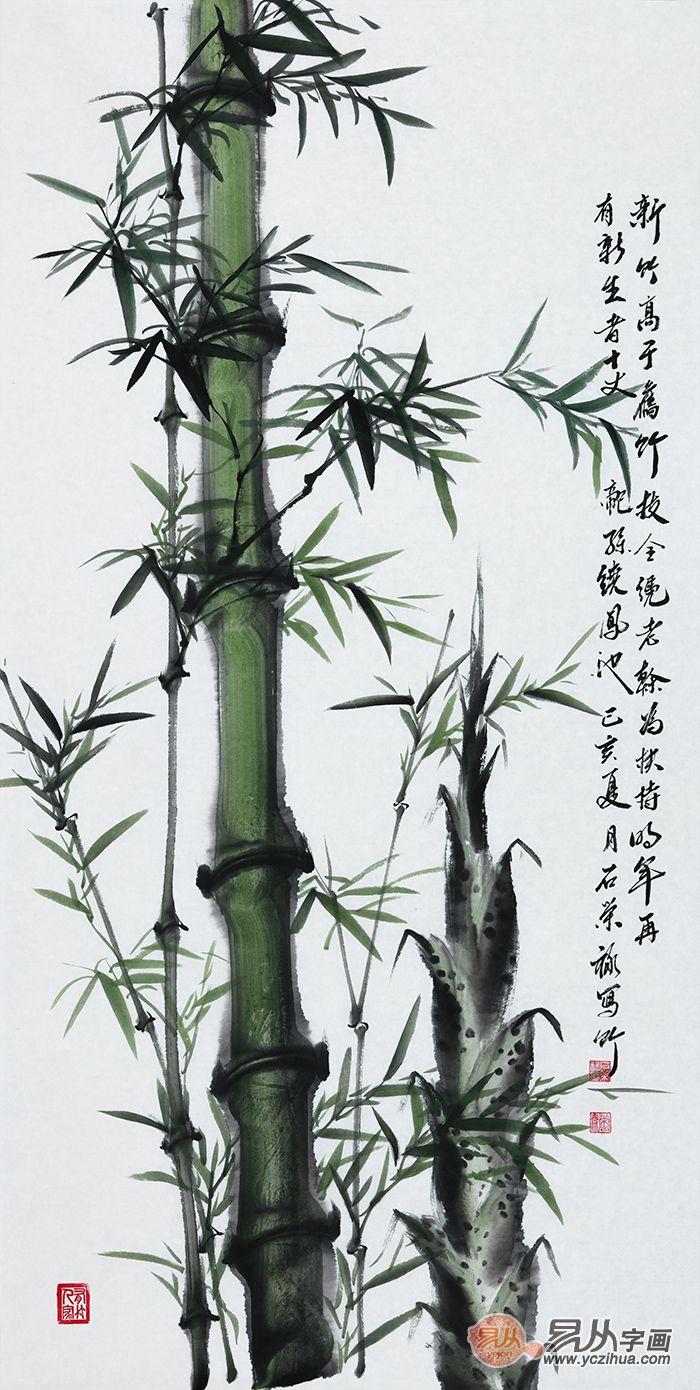 新竹高于舊竹枝全凭老幹為扶持明年再
有新生者十丈龍孫繞鳳池己亥夏月石榮祿寫竹
易从
易从字画
www.yczihua.com